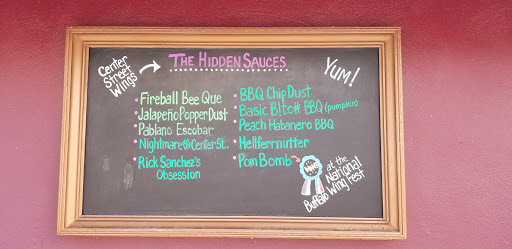 Center
Street
Wings
THE HIDDEN SAUCES
YUM!
• Fireball Bee Que
• Jalapeño Popper Dust
• Pablano Escobar
• Nightmare @ Center St.
• Rick Sanchez's
Obsession
• BBQ Chip Dust
• Basic B!tc# BBQ (pumpkin)
• Peach Habanero BBQ
• Hellfernnutter
• Pom Bomb
at the
National
Buffalo Wing Fest